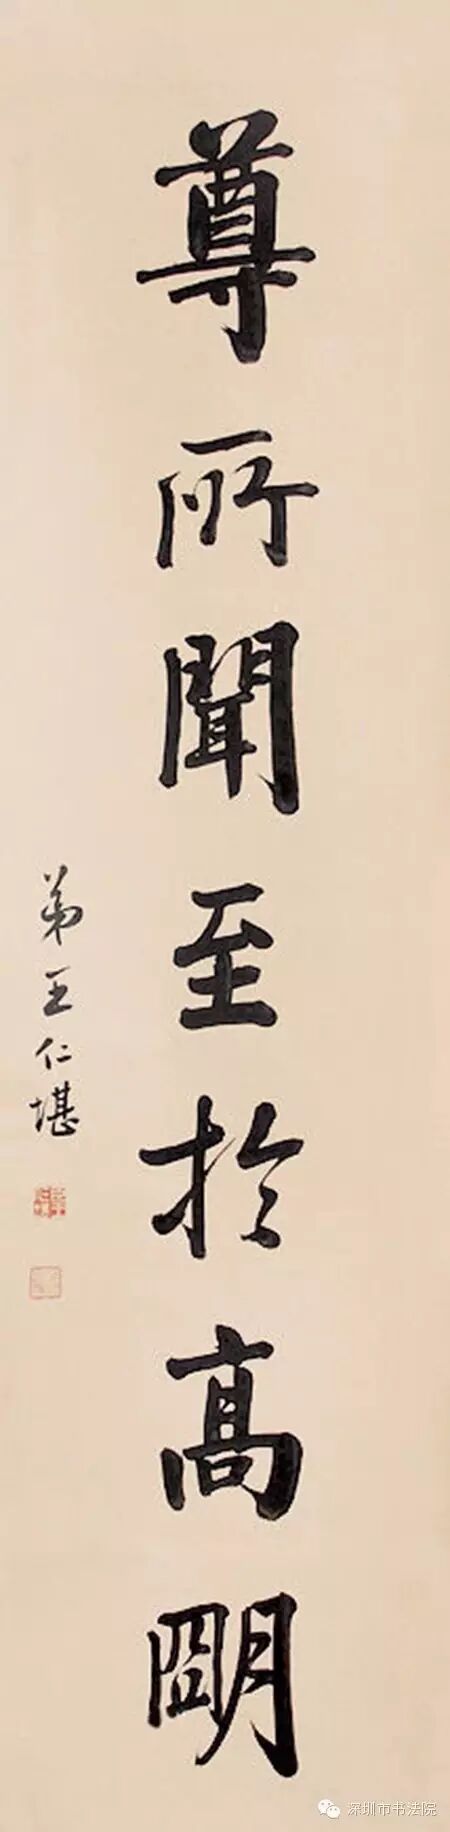 尊所聞至於高朙
弟王仁堪
深圳市书法院